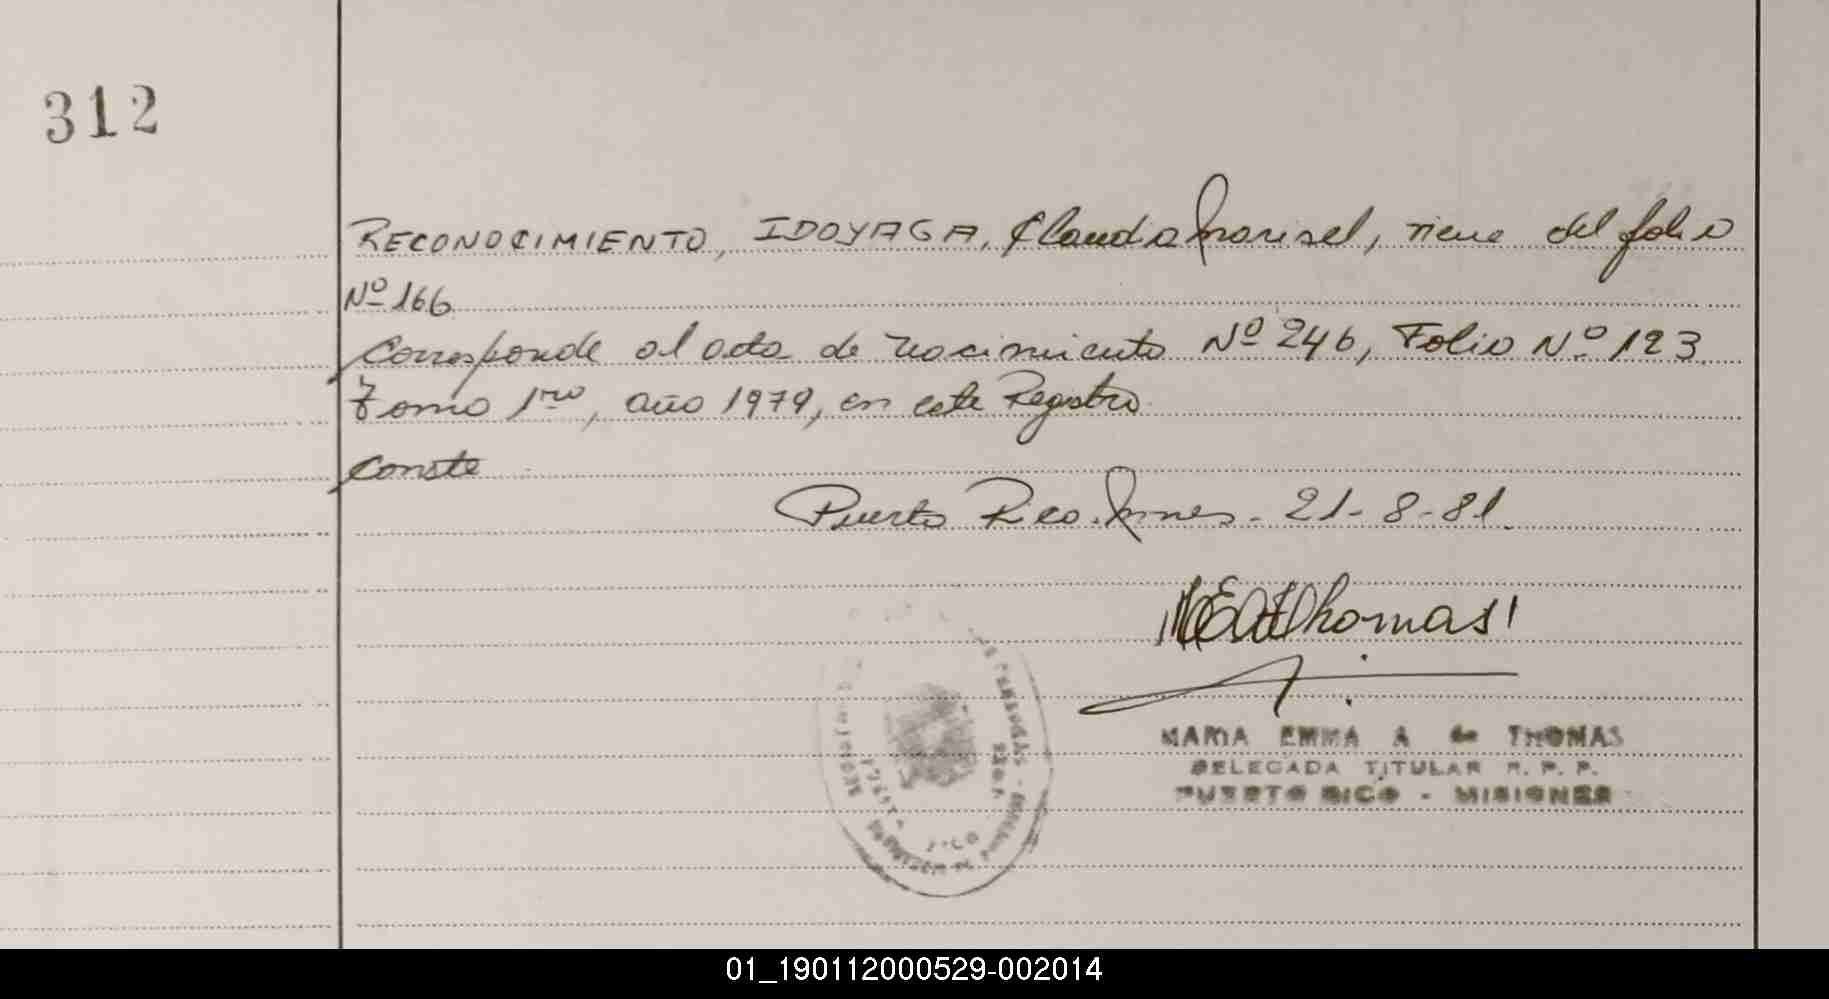 312
RECONOCIMIENTO, IDOYAGA, Claudia Marisel, viene del folio
Nº 166
Corresponde al acta de nacimiento Nº 246, Folio Nº 123
Tomo 1ro, año 1979, en este Registro
Conste
Puerto Rico. Mnes - 21-8-81.
MEA de Thomas
MARIA EMMA A de THOMAS
DELEGADA TITULAR R. P. P.
PUERTO RICO - MISIONES
01_190112000529-002014